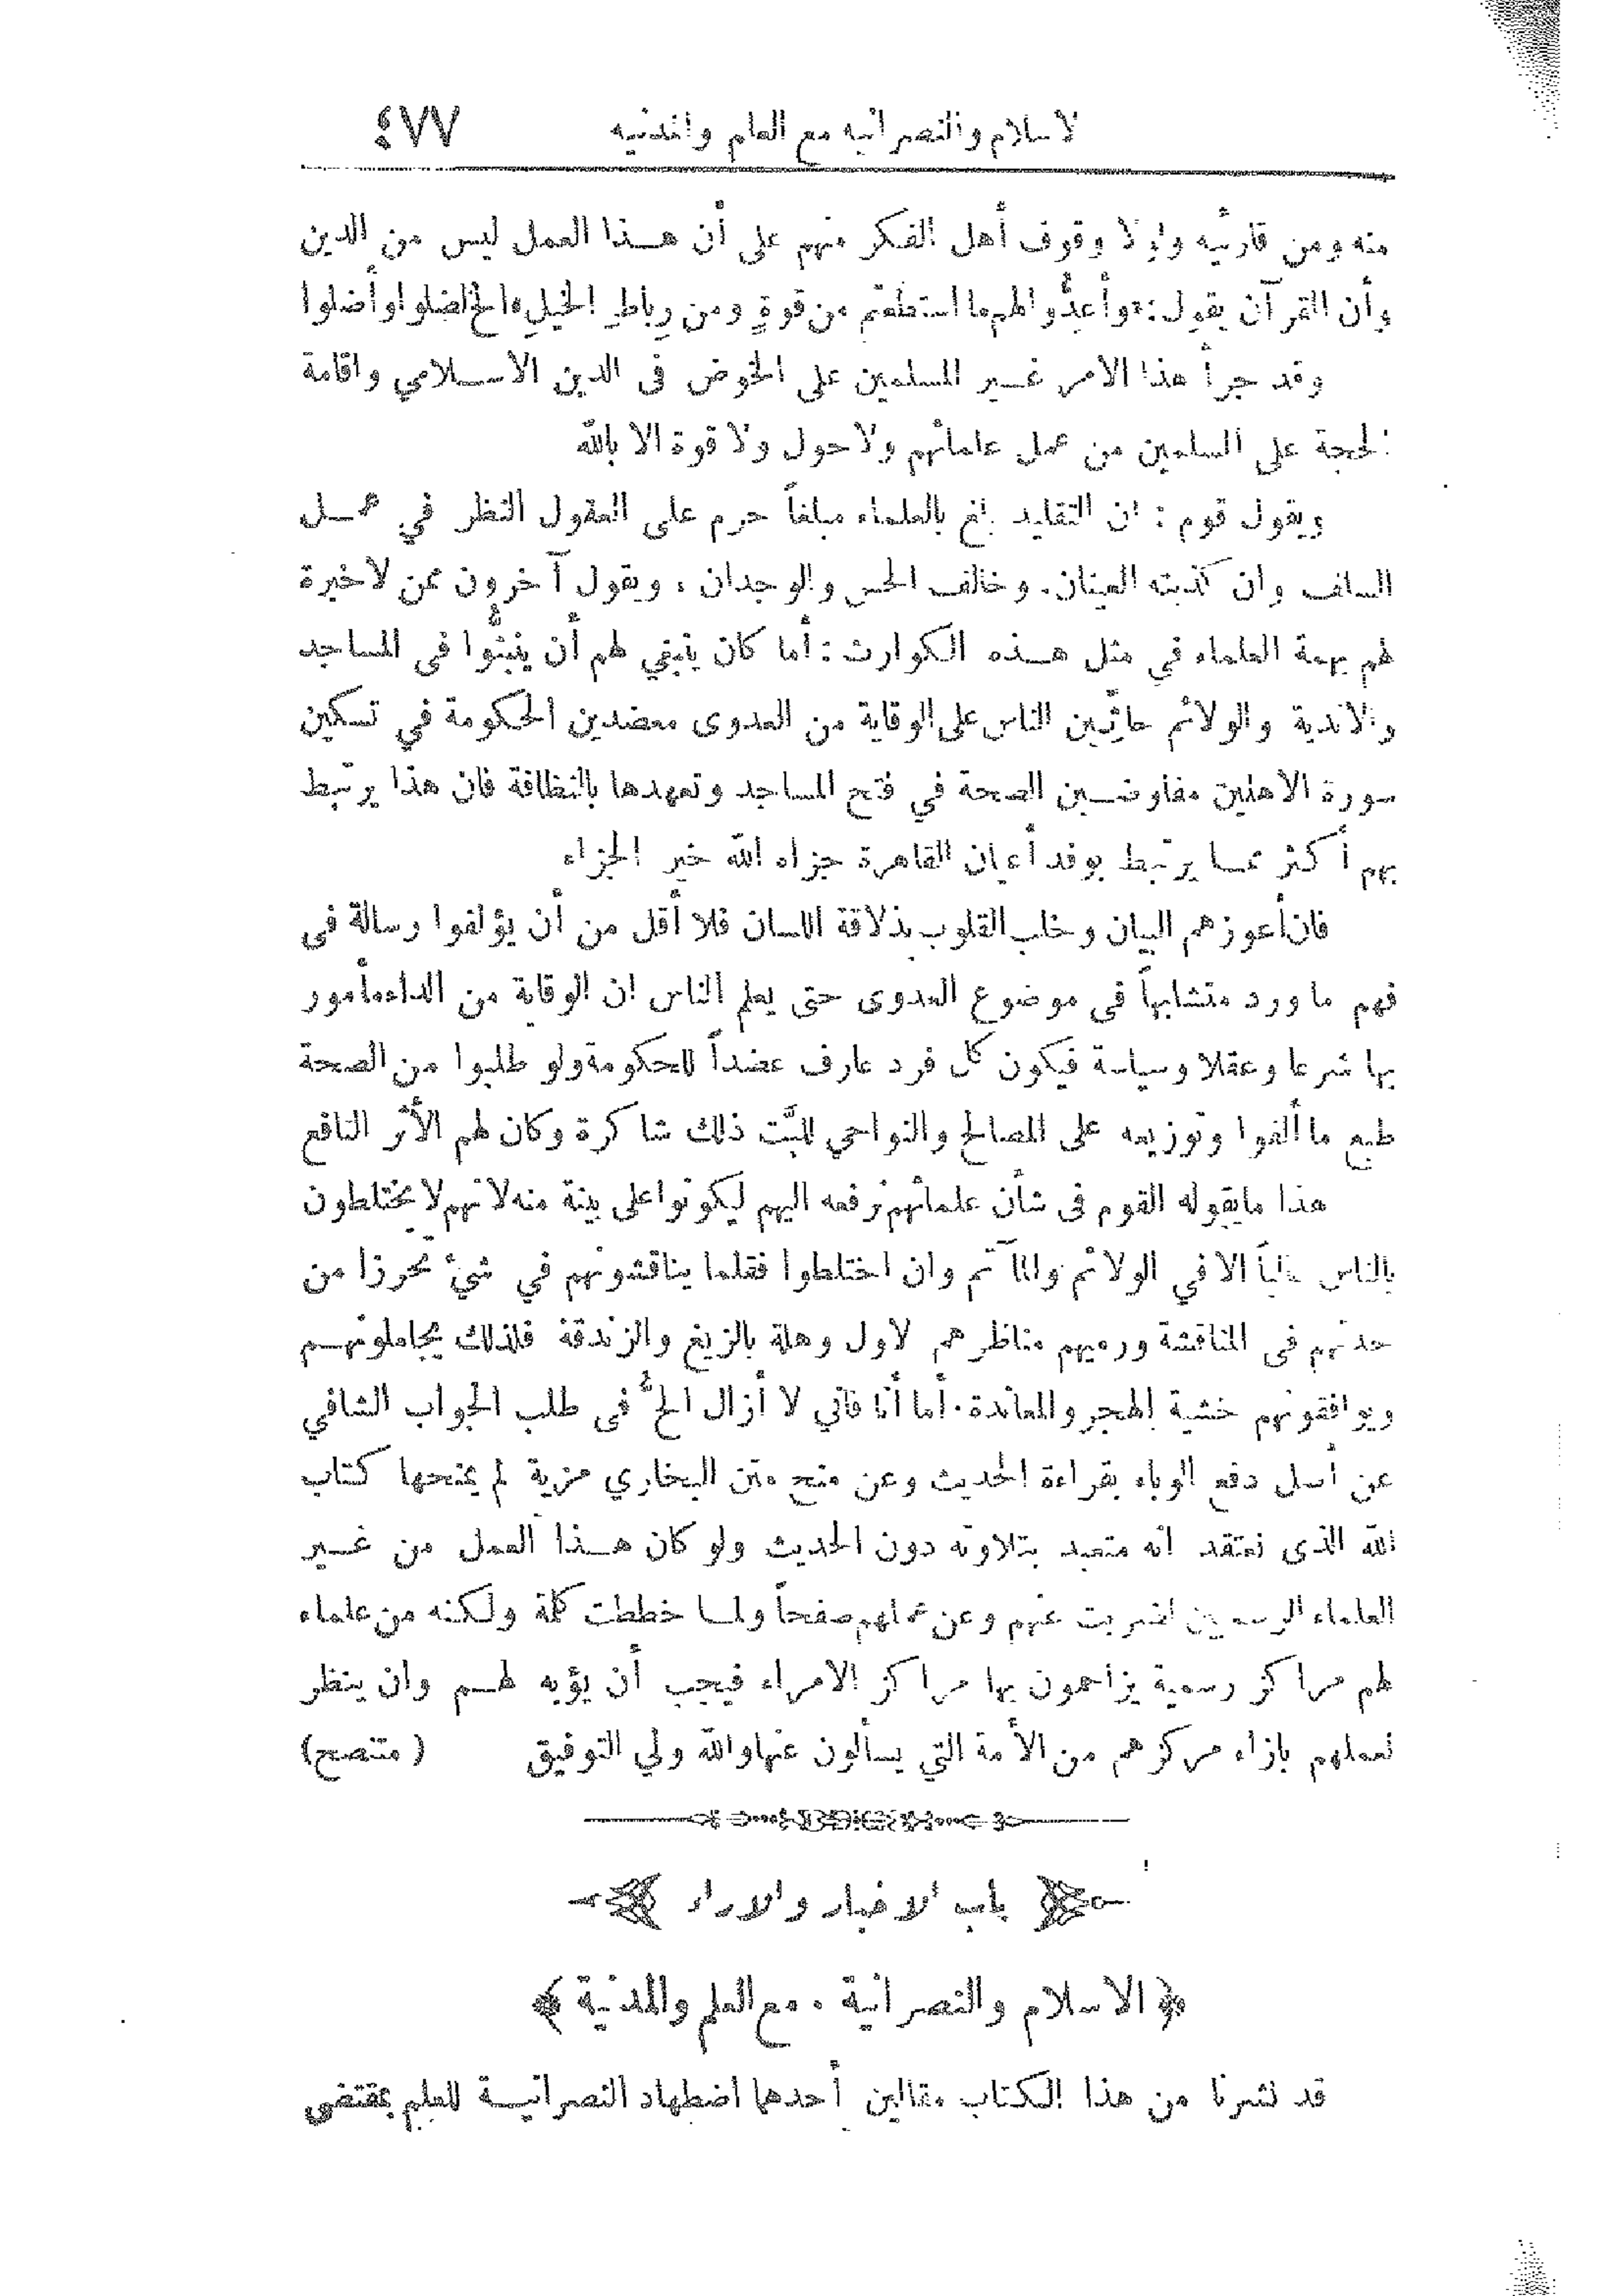 الاسلام والنصرانية مع العلم والمدنية ٤٧٧
منه ومن قارئيه ولولا وقوف أهل الفكر منهم على أن هذا العمل ليس من الدين
وأن القرآن يقول: «وأعدُّوا لهم ما استطعتم من قوةٍ ومن رِباطِ الخيلِ» الخ لضلوا وأضلوا
وقد جرأ هذا الامر غير المسلمين على الخوض فى الدين الاسلامي واقامة
الحجة على المسلمين من عمل علمائهم ولا حول ولا قوة الا بالله
ويقول قوم : ان التقليد بلغ بالعلماء مبلغاً حرم على العقول النظر في عمل
السلف وان كذبته العينان. وخالف الحس والوجدان ، ويقول آخرون ممن لا خبرة
لهم بهمة العلماء في مثل هذه الكوارث : أما كان ينبغي لهم أن ينبثُّوا فى المساجد
والاندية والولائم حاثِّين الناس على الوقاية من العدوى معضدين الحكومة في تسكين
سورة الاهلين مفاوضين الصحة في فتح المساجد وتعهدها بالنظافة فان هذا يرتبط
بهم أكثر مما يرتبط بوفد أعيان القاهرة جزاه الله خير الجزاء
فان أعوزهم البيان وخلب القلوب بذلاقة اللسان فلا أقل من أن يؤلفوا رسالة فى
فهم ما ورد متشابهاً فى موضوع العدوى حتى يعلم الناس ان الوقاية من الداء مأمور
بها شرعا وعقلا وسياسة فيكون كل فرد عارف عضداً للحكومة ولو طلبوا من الصحة
طبع ما ألفوا وتوزيعه على المصالح والنواحي للبَّت ذلك شاكرة وكان لهم الأثر النافع
هذا مايقوله القوم فى شأن علمائهم نرفعه اليهم ليكونوا على بينة منه لانهم لا يختلطون
بالناس غالباً الا في الولائم والمآتم وان اختلطوا فقلما يناقشونهم في شيء تحرزا من
حدتهم فى المناقشة ورميهم مناظرهم لاول وهلة بالزيغ والزندقة فلذلك يجاملونهم
ويوافقونهم خشية الهجر والمعاندة. أما أنا فاني لا أزال ألحُّ فى طلب الجواب الشافي
عن أصل دفع الوباء بقراءة الحديث وعن منح متن البخاري مزية لم يمنحها كتاب
الله الذى نعتقد انه متعبد بتلاوته دون الحديث ولو كان هذا العمل من غير
العلماء الرسميين لضربت عنهم وعن عملهم صفحاً ولما خططت كلمة ولكنه من علماء
لهم مراكز رسمية يزاحمون بها مراكز الامراء فيجب أن يؤبه لهم وان ينظر
لعملهم بازاء مركزهم من الأمة التي يسألون عنها والله ولي التوفيق (متنصح)
باب الاخبار والاراء
﴿ الاسلام والنصرانية . مع العلم والمدنية ﴾
قد نشرنا من هذا الكتاب مقالين أحدهما اضطهاد النصرانية للعلم بمقتضى